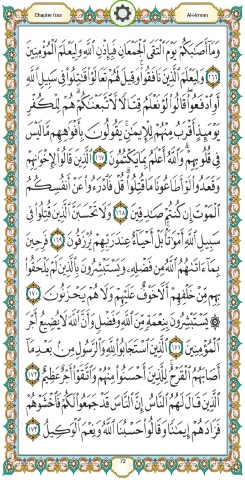 Chapter four
Al-Imran
وَمَآ أَصَٰبَكُمْ يَوْمَ ٱلْتَقَى ٱلْجَمْعَانِ فَبِإِذْنِ ٱللَّهِ وَلِيَعْلَمَ ٱلْمُؤْمِنِينَ
١٦٦ وَلِيَعْلَمَ ٱلَّذِينَ نَافَقُوا۟ وَقِيلَ لَهُمْ تَعَالَوْا۟ قَٰتِلُوا۟ فِى سَبِيلِ ٱللَّهِ
أَوِ ٱدْفَعُوا۟ قَالُوا۟ لَوْ نَعْلَمُ قِتَالًا لَّٱتَّبَعْنَٰكُمْ هُمْ لِلْكُفْرِ
يَوْمَئِذٍ أَقْرَبُ مِنْهُمْ لِلْإِيمَٰنِ يَقُولُونَ بِأَفْوَٰهِهِم مَّا لَيْسَ
فِى قُلُوبِهِمْ وَٱللَّهُ أَعْلَمُ بِمَا يَكْتُمُونَ ١٦٧ ٱلَّذِينَ قَالُوا۟ لِإِخْوَٰنِهِمْ
وَقَعَدُوا۟ لَوْ أَطَاعُونَا مَا قُتِلُوا۟ قُلْ فَٱدْرَءُوا۟ عَنْ أَنفُسِكُمُ
ٱلْمَوْتَ إِن كُنتُمْ صَٰدِقِينَ ١٦٨ وَلَا تَحْسَبَنَّ ٱلَّذِينَ قُتِلُوا۟ فِى
سَبِيلِ ٱللَّهِ أَمْوَٰتًۢا بَلْ أَحْيَآءٌ عِندَ رَبِّهِمْ يُرْزَقُونَ ١٦٩ فَرِحِينَ
بِمَآ ءَاتَىٰهُمُ ٱللَّهُ مِن فَضْلِهِۦ وَيَسْتَبْشِرُونَ بِٱلَّذِينَ لَمْ يَلْحَقُوا۟
بِهِم مِّنْ خَلْفِهِمْ أَلَّا خَوْفٌ عَلَيْهِمْ وَلَا هُمْ يَحْزَنُونَ ١٧٠
۞ يَسْتَبْشِرُونَ بِنِعْمَةٍ مِّنَ ٱللَّهِ وَفَضْلٍ وَأَنَّ ٱللَّهَ لَا يُضِيعُ أَجْرَ
ٱلْمُؤْمِنِينَ ١٧١ ٱلَّذِينَ ٱسْتَجَابُوا۟ لِلَّهِ وَٱلرَّسُولِ مِنۢ بَعْدِ مَآ
أَصَابَهُمُ ٱلْقَرْحُ لِلَّذِينَ أَحْسَنُوا۟ مِنْهُمْ وَٱتَّقَوْا۟ أَجْرٌ عَظِيمٌ ١٧٢
ٱلَّذِينَ قَالَ لَهُمُ ٱلنَّاسُ إِنَّ ٱلنَّاسَ قَدْ جَمَعُوا۟ لَكُمْ فَٱخْشَوْهُمْ
فَزَادَهُمْ إِيمَٰنًا وَقَالُوا۟ حَسْبُنَا ٱللَّهُ وَنِعْمَ ٱلْوَكِيلُ ١٧٣
72